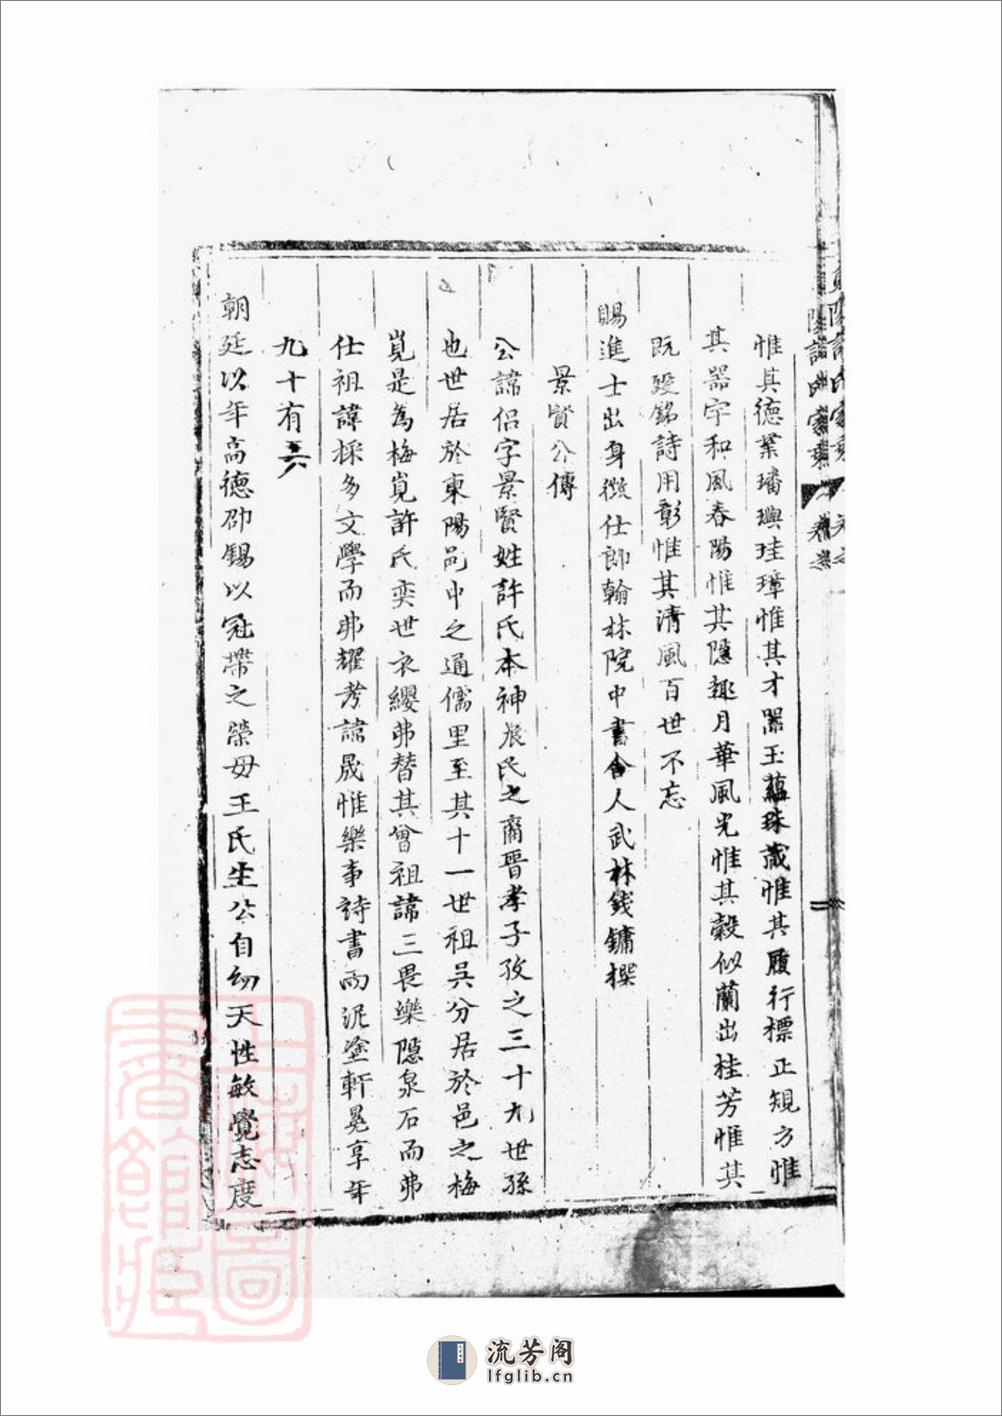 惟其德業璠璵珪璋惟其才器玉蘊珠藏惟其履行標正規方惟
其器宇和風春陽惟其隱趣月華風光惟其穀似蘭出桂芳惟其
既歿銘詩用彰惟其清風百世不忘
賜進士出身徵仕郎翰林院中書舍人武林錢鏞撰
景賢公傳
公諱侶字景賢姓許氏本神農氏之裔晉孝子孜之三十九世孫
也世居於東陽邑中之通儒里至其十一世祖吳分居於邑之梅
峴是為梅峴許氏奕世衣纓弗替其曾祖諱三畏樂隱泉石而弗
仕祖諱採多文學而弗耀考諱晟惟樂事詩書而泥塗軒冕享年
九十有六
朝廷以年高德卲錫以冠帶之榮母王氏生公自幼天性敏覺志度
東陽許氏家乘
上海圖書館藏
流芳阁
lfglib.cn